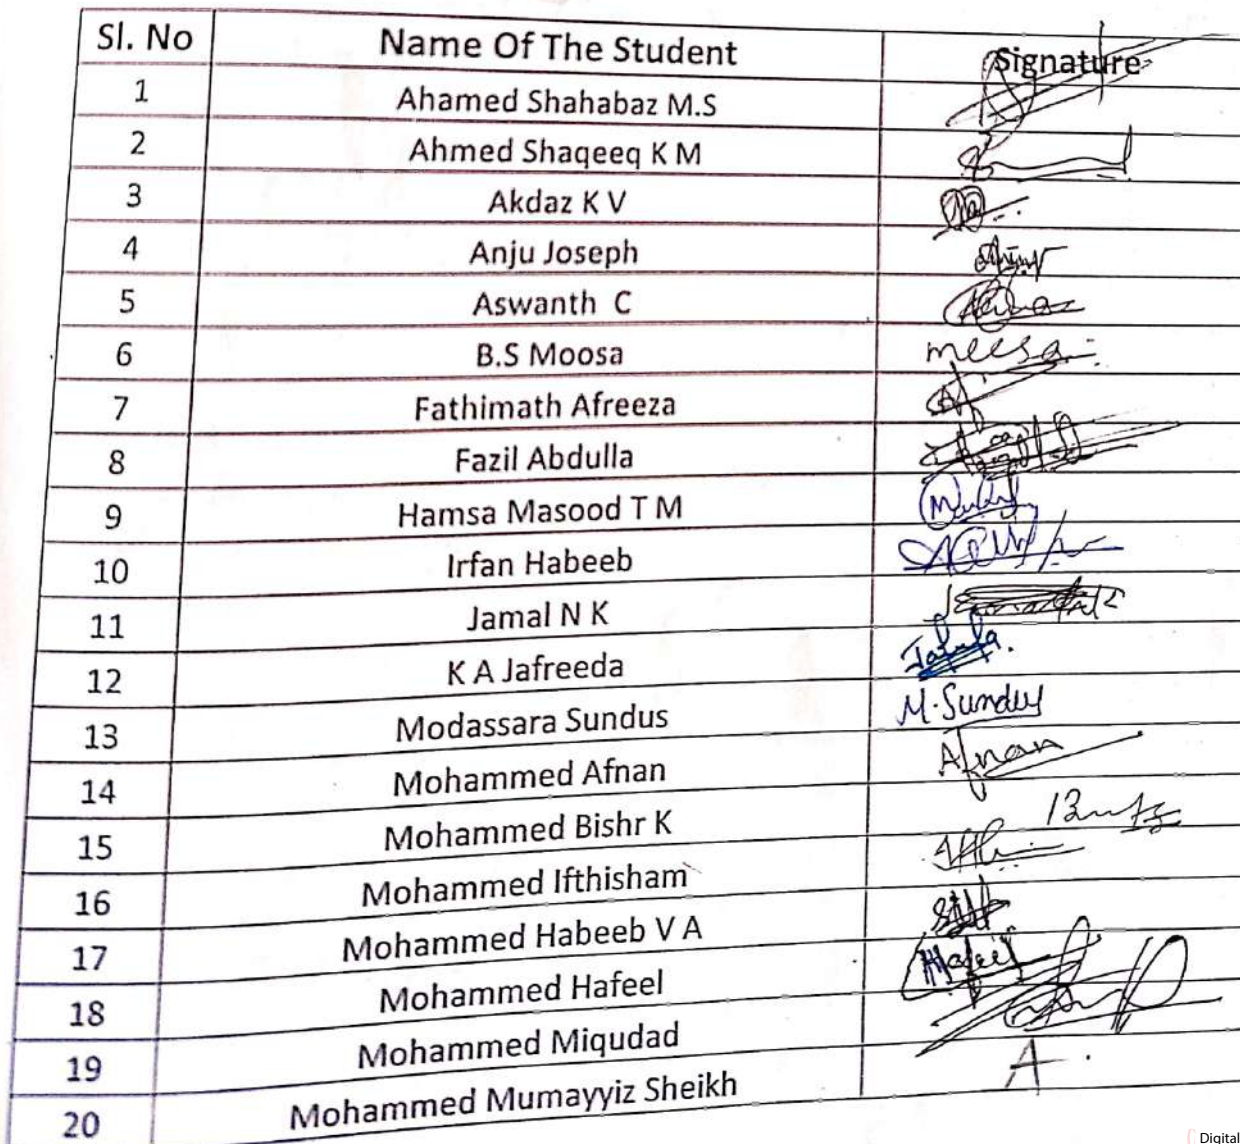 Sl. No Name Of The Student Signature
1 Ahamed Shahabaz M.S
2 Ahmed Shaqeeq K M
3 Akdaz K V
4 Anju Joseph
5 Aswanth C
6 B.S Moosa
7 Fathimath Afreeza
8 Fazil Abdulla
9 Hamsa Masood T M
10 Irfan Habeeb
11 Jamal N K
12 K A Jafreeda
13 Modassara Sundus M.Sundus
14 Mohammed Afnan Afnan
15 Mohammed Bishr K
16 Mohammed Ifthisham
17 Mohammed Habeeb V A
18 Mohammed Hafeel Hafeel
19 Mohammed Miqudad
20 Mohammed Mumayyiz Sheikh A
Digital